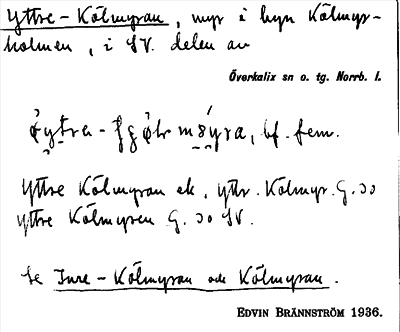 Yttre-Kölmyran, myr i byn Kölmyr-
holmen, i SV. delen av
Överkalix sn o. tg. Norrb. l.
bf. fem.
Yttre Kölmyran ek., yttr. Kölmyr. G. 30
yttre Kölmyren G. 30 SV.
Se Inre-Kölmyran och Kölmyran.
EDVIN BRÄNNSTRÖM 1936.